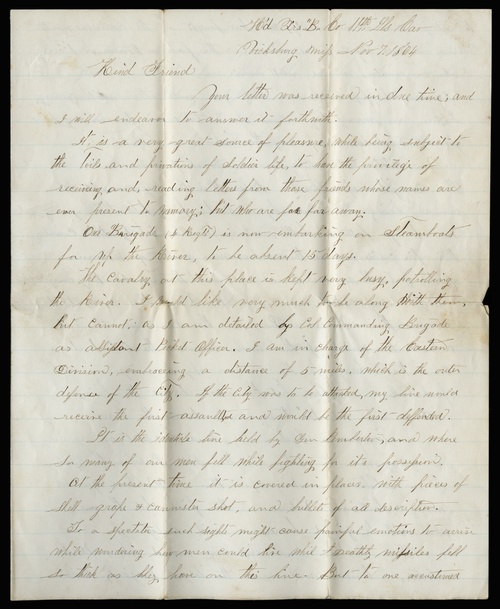 Hd Qrs B. Co 11th Ills Cav
Vicksburg Miss Nov 7. 1864
Kind Friend
Your letter was received in due time; and
I will endeavor to answer it forthwith.
It is a very great source of pleasure, while being subject to
the toils and privations of soldier life, to have the privilege of
receiving and, reading letters from those friends whose names are
ever present to memory; but who are far far away.
Our Brigade is now embarking on Steamboats
for up the River, to be absent 15 days.
The Cavalry at this place is kept very busy, patrolling
the River. I would like very much to be along with them,
but cannot; as I am detailed by Col Commanding Brigade
as assistant Picket Officer. I am in charge of the Eastern
Division, embracing a distance of 5 miles. which is the outer
defense of the City. If the City was to be attacked, my line would
receive the first assault and would be the first defended.
It is the identicle line held by Gen Pemberton, and where
so many of our men fell while fighting for it's possession.
At the present time it is covered in places with pieces of
shell grape & cannister shot, and bullets of all description.
To a spectator such sights might cause painful emotions to arise
while wondering how men could live whilst missiles fell
so thick as they have on this line. But to one accustomed